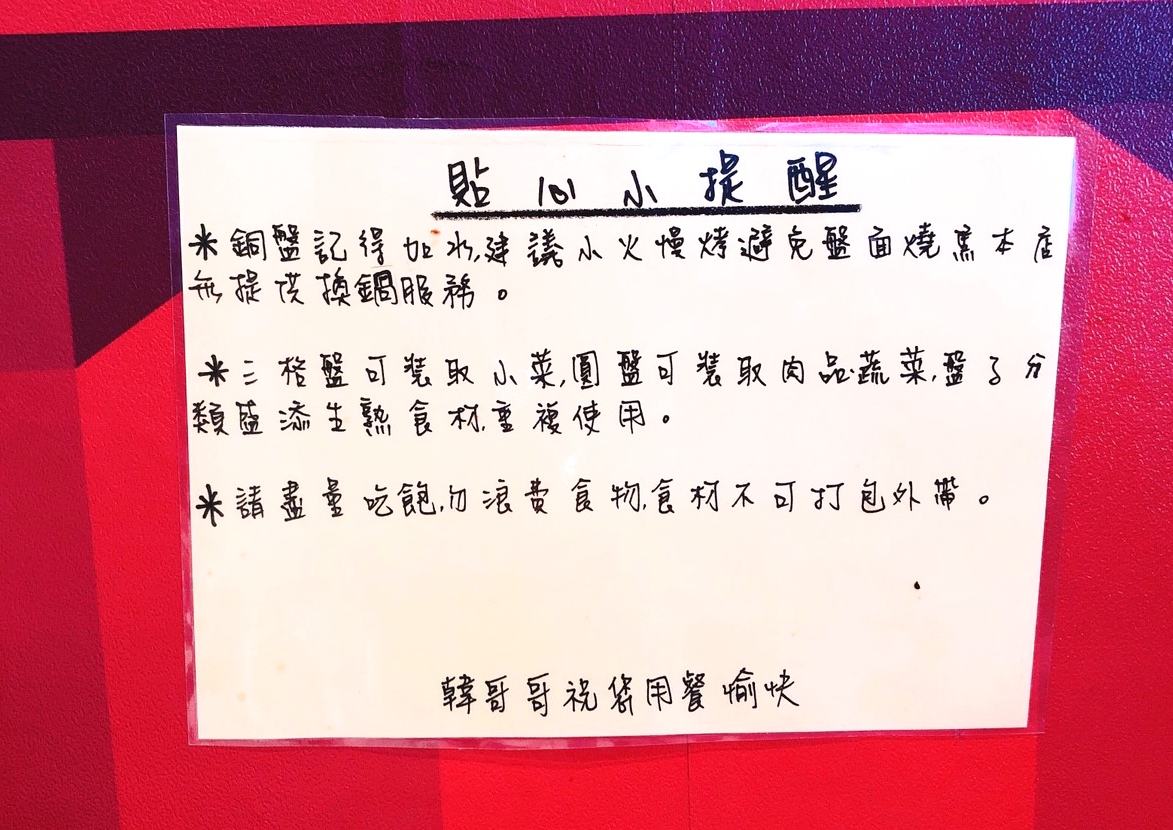 貼心小提醒
＊銅盤記得加水,建議小火慢烤避免盤面燒焦本店
無提供換鍋服務。
＊三格盤可裝取小菜,圓盤可裝取肉品蔬菜,盤子分
類盛添生熟食材,重複使用。
＊請盡量吃飽,勿浪費食物,食材不可打包外帶。
韓哥哥祝您用餐愉快